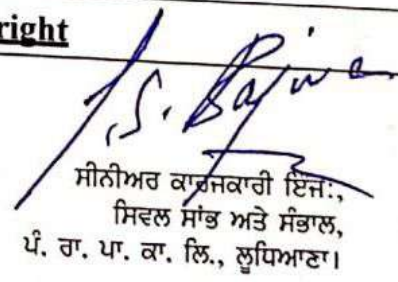 right
S. Bajwa
ਸੀਨੀਅਰ ਕਾਰਜਕਾਰੀ ਇੰਜ:,
ਸਿਵਲ ਸਾਂਭ ਅਤੇ ਸੰਭਾਲ,
ਪੰ. ਰਾ. ਪਾ. ਕਾ. ਲਿ., ਲੁਧਿਆਣਾ।